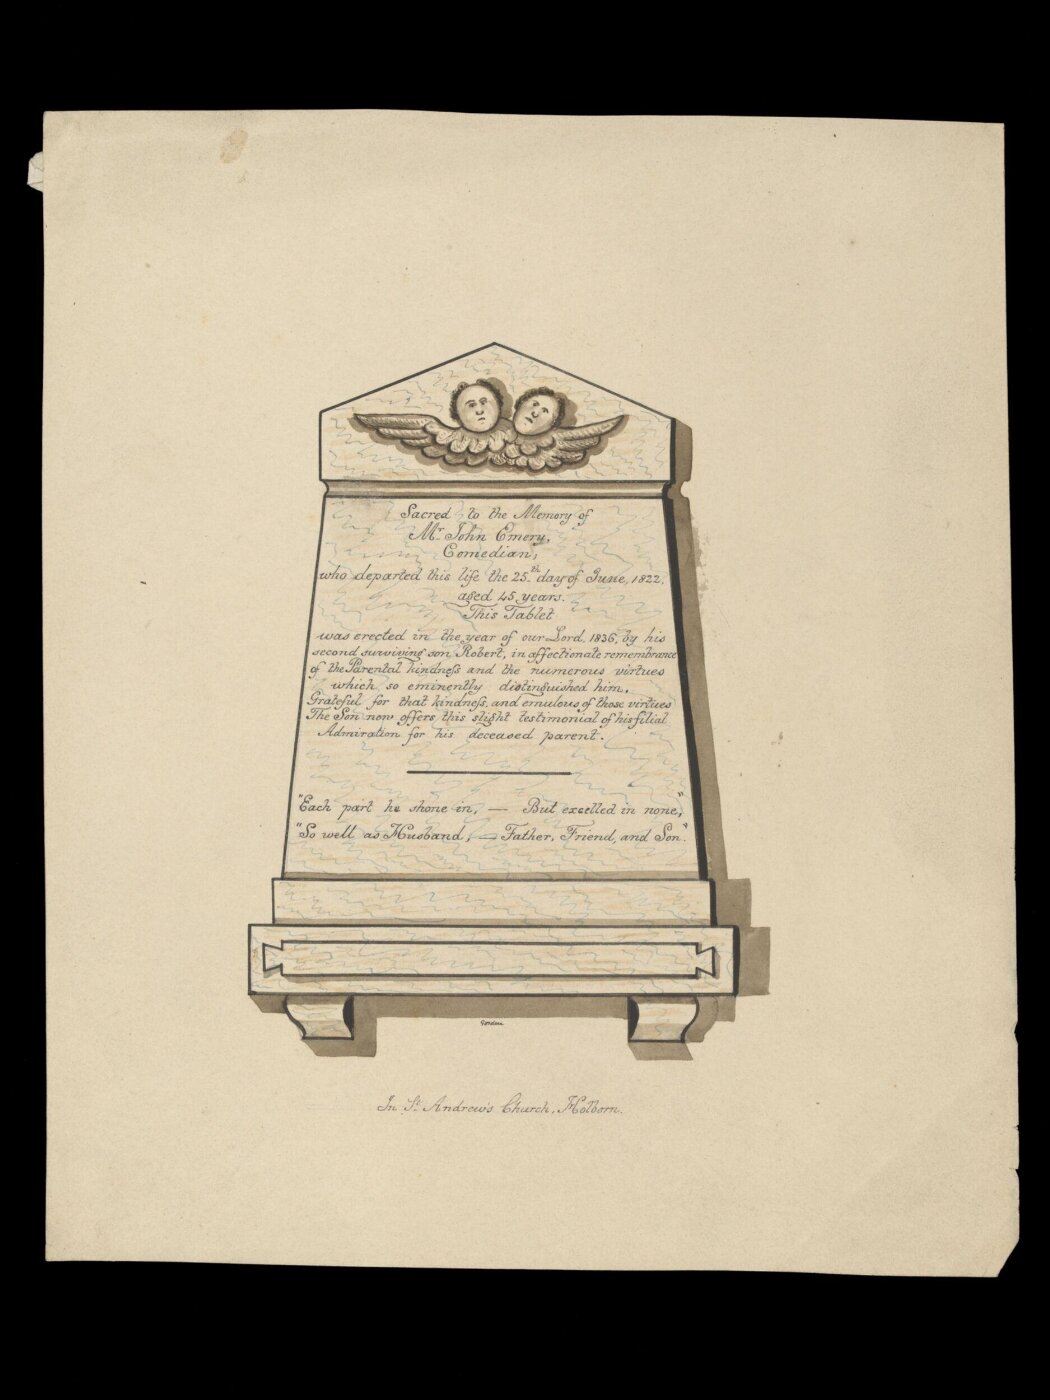 Sacred to the Memory of
Mr. John Emery,
Comedian,
who departed this life the 25.th day of June, 1822,
aged 45 years.
This Tablet
was erected in the year of our Lord, 1836, by his
second surviving son Robert, in affectionate remembrance
of the Parental kindness and the numerous virtues
which so eminently distinguished him.
Grateful for that kindness, and emulous of those virtues
The Son now offers this slight testimonial of his filial
Admiration for his deceased parent.
"Each part he shone in, — But excelled in none,"
"So well as Husband, — Father, Friend, and Son."
In St. Andrew's Church, Holborn.